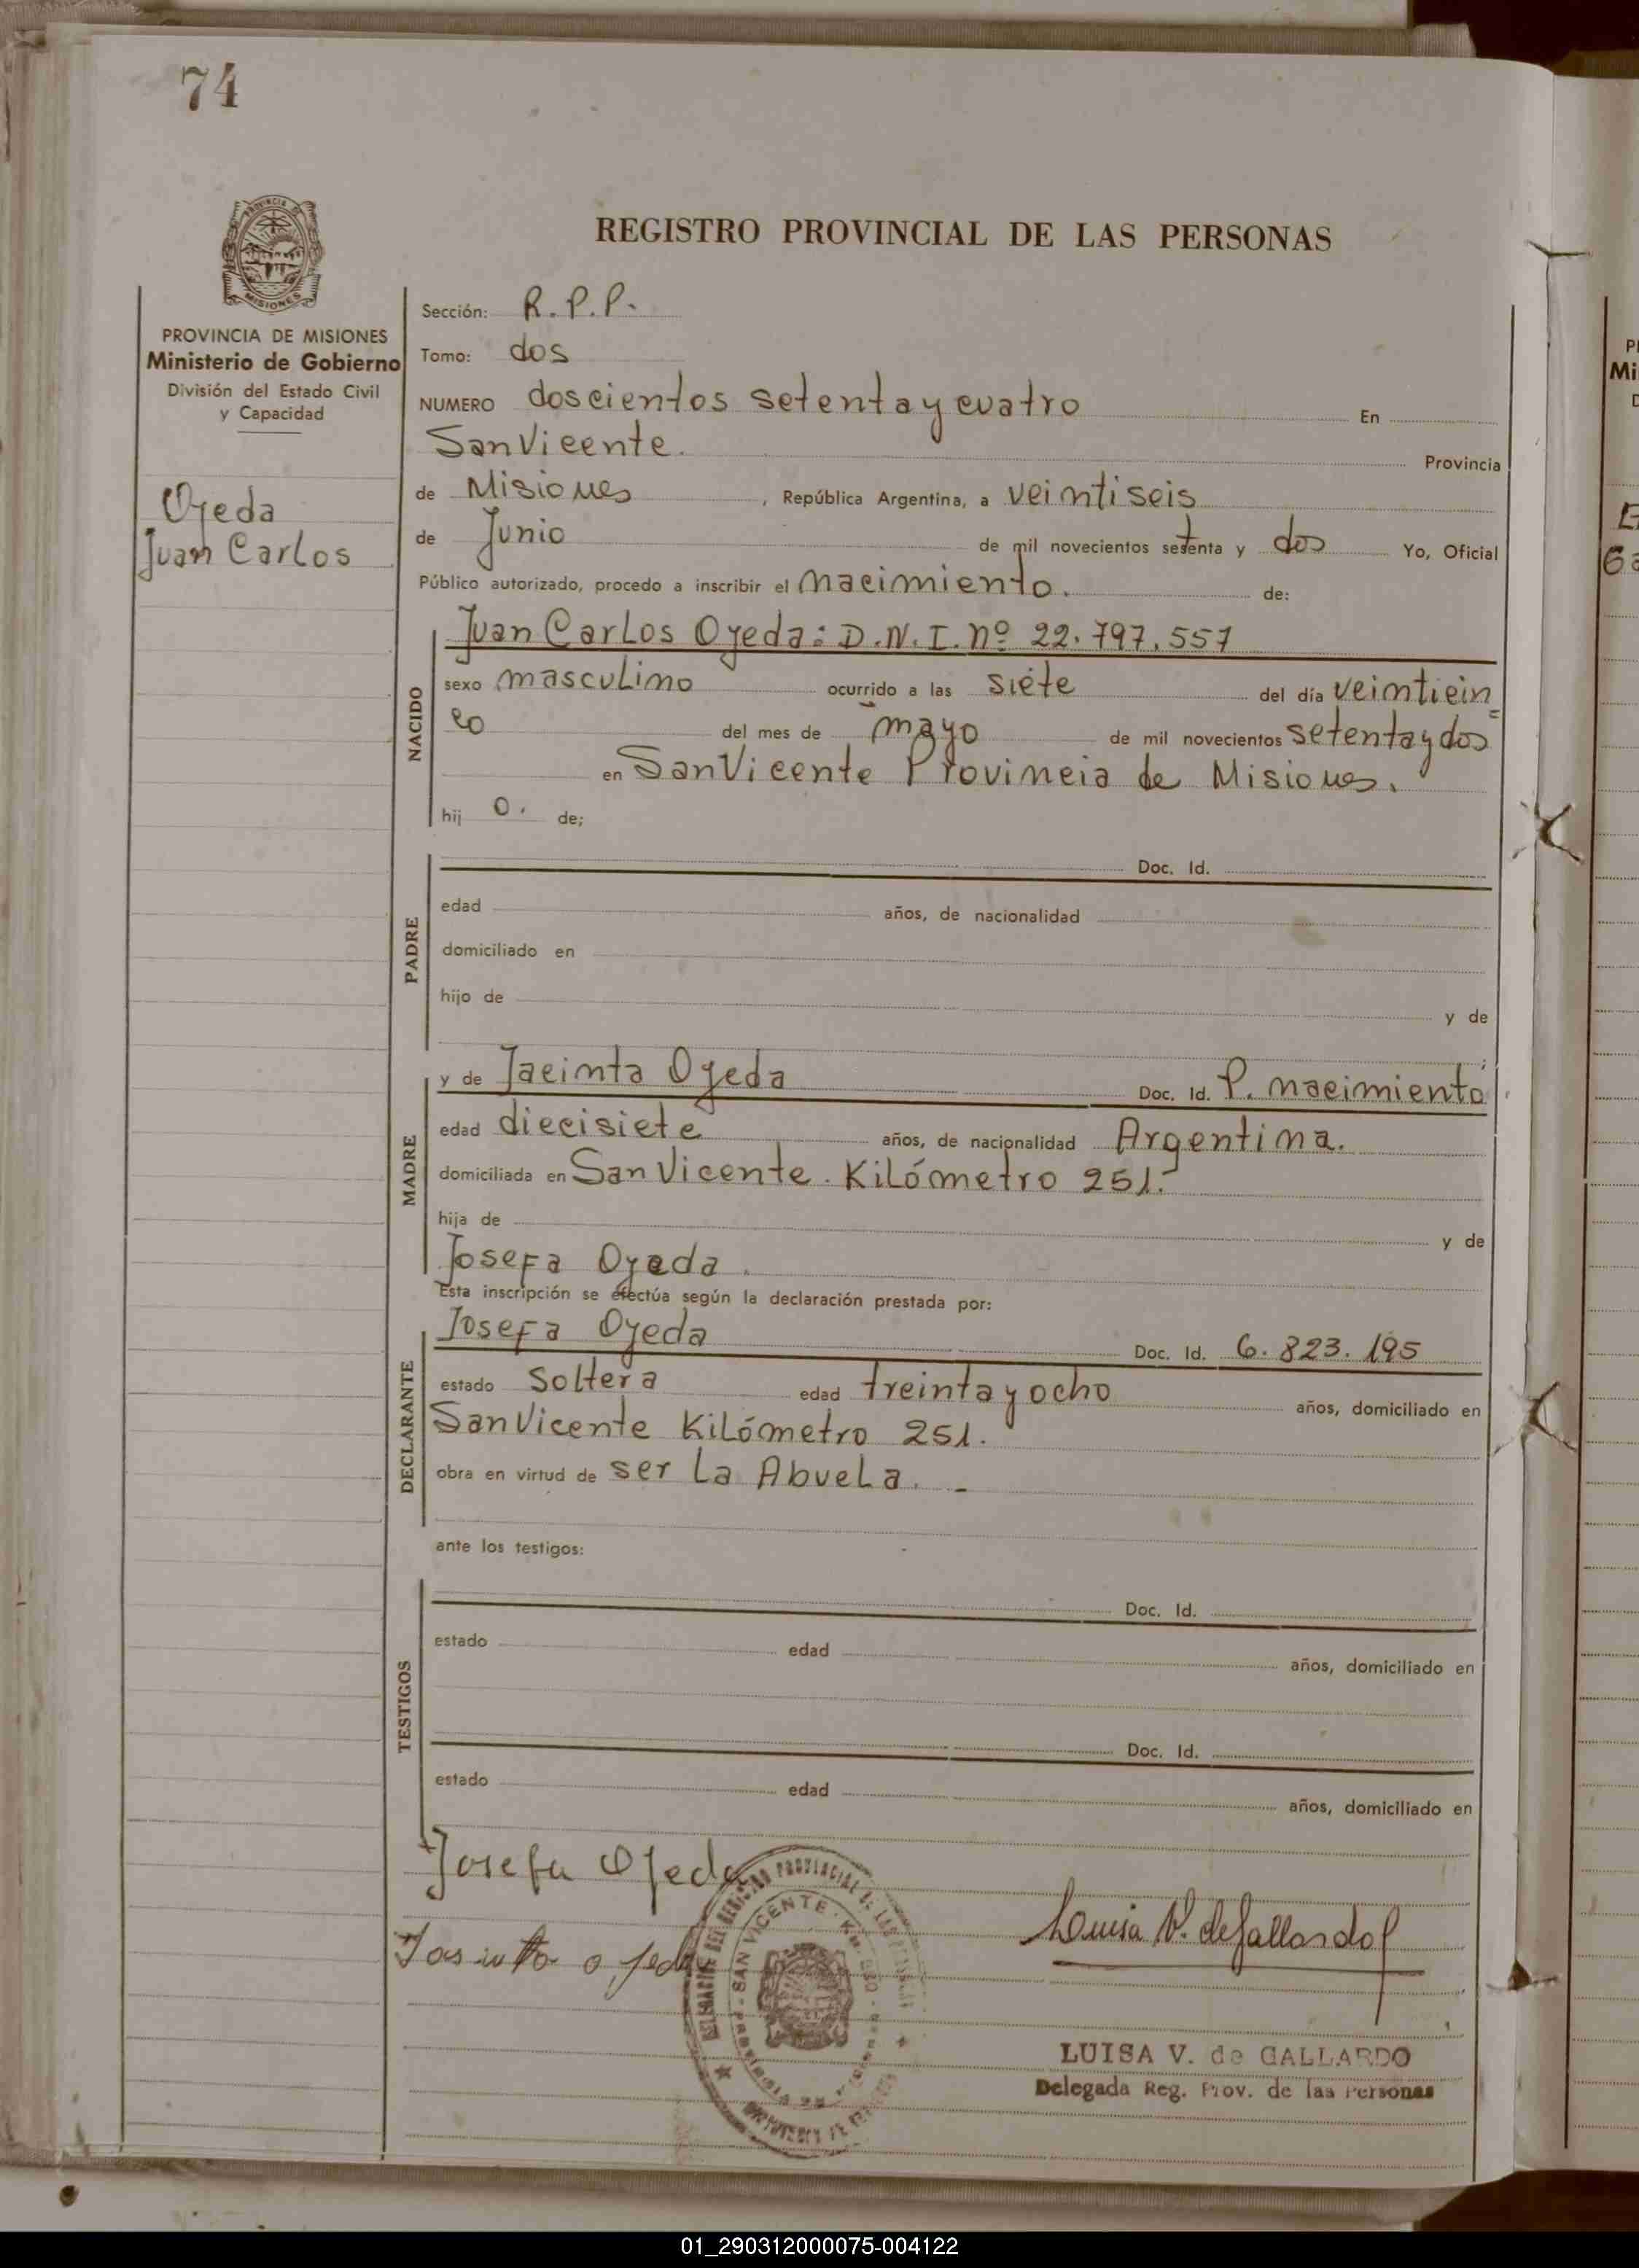 74
PROVINCIA DE MISIONES
REGISTRO PROVINCIAL DE LAS PERSONAS
PROVINCIA DE MISIONES
Ministerio de Gobierno
División del Estado Civil
y Capacidad
Ojeda
Juan Carlos
Sección: R.P.P.
Tomo: dos
NUMERO doscientos setenta y cuatro En
San Vicente. Provincia
de Misiones, República Argentina, a veintiseis
de Junio de mil novecientos setenta y dos Yo, Oficial
Público autorizado, procedo a inscribir el nacimiento. de:
NACIDO
Juan Carlos Ojeda: D.N.I. nº 22.797.557
sexo masculino ocurrido a las siete del día veinticin=
co del mes de mayo de mil novecientos setenta y dos
en San Vicente Provincia de Misiones.
hij o. de;
PADRE
Doc. Id.
edad años, de nacionalidad
domiciliado en
hijo de y de
MADRE
y de Jacinta Ojeda Doc. Id. P. nacimiento
edad diecisiete años, de nacionalidad Argentina.
domiciliada en San Vicente. Kilómetro 251.-
hija de y de
Josefa Ojeda.
Esta inscripción se efectúa según la declaración prestada por:
DECLARANTE
Josefa Ojeda Doc. Id. 6.823.195
estado Soltera edad treinta y ocho años, domiciliado en
San Vicente Kilómetro 251.
obra en virtud de ser La Abuela. -
ante los testigos:
TESTIGOS
Doc. Id.
estado edad años, domiciliado en
Doc. Id.
estado edad años, domiciliado en
Josefa Ojeda
Jasinta ojeda
SAN VICENTE
Luisa V. de Gallardo
LUISA V. de GALLARDO
Delegada Reg. Prov. de las Personas
01_290312000075-004122